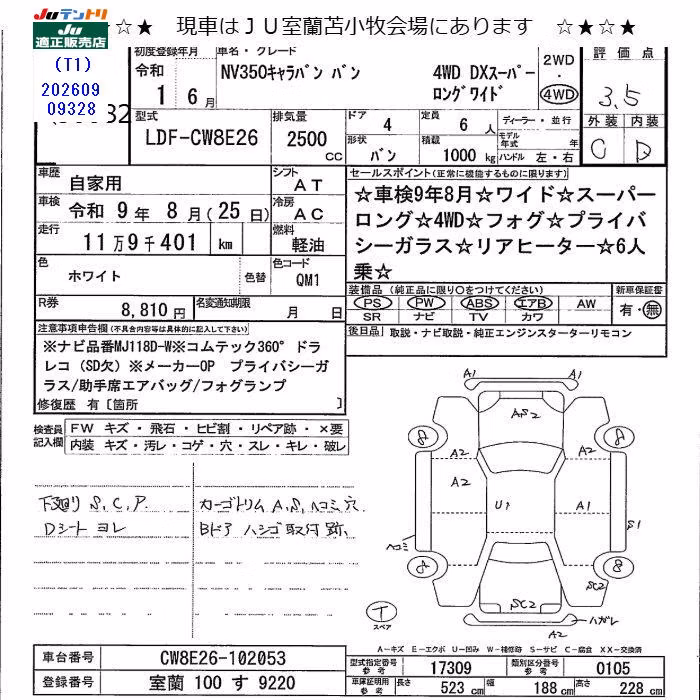 JUテントリ
JU
適正販売店
☆★ 現車はJU室蘭苫小牧会場にあります ☆★☆★
(T1)
202609
09328
初度登録年月
令和
1 6月
車名・グレード
NV350キャラバン バン
4WD DXスーパー
ロングワイド
2WD
・
4WD
評価点
3.5
外装 内装
C D
型式
LDF-CW8E26
排気量
2500
cc
ドア
4
定員
6 人
形状
バン
積載
1000 kg
ディーラー・並行
モデル
年式 年
ハンドル 左・右
車歴
自家用
シフト
AT
車検
令和 9年 8月(25日)
冷房
AC
走行
11万9千401 km
燃料
軽油
色
ホワイト
色替
色コード
QM1
R券
8,810円
名変通知期限
月 日
セールスポイント(正常に機能するものに限ります)
☆車検9年8月☆ワイド☆スーパー
ロング☆4WD☆フォグ☆プライバ
シーガラス☆リアヒーター☆6人
乗☆
装備品(純正品に限り○をつけてください)
PS PW ABS エアB AW
SR ナビ TV カワ
新車保証書
有・無
後日品 取説・ナビ取説・純正エンジンスターターリモコン
注意事項申告欄(不具合内容等は具体的に記入して下さい)
※ナビ品番MJ118D-W※コムテック360°ドラ
レコ(SD欠)※メーカーOP プライバシーガ
ラス/助手席エアバッグ/フォグランプ
修復歴 有〔箇所 〕
検査員
記入欄
FW キズ・飛石・ヒビ割・リペア跡・×要
内装 キズ・汚レ・コゲ・穴・スレ・キレ・破レ
下廻り S,C,P.
Dシート ヨレ
カーゴトリム A,S,ヘコミ穴
Bドア ハシゴ取付跡
A1 A1
AS2
8 8
A2 A2
A2
U1
A1
S1
ヘコミ
8 8
SC2
SC2
ハガレ
A2
T
スペア
A-キズ E-エクボ U-凹み W-補修時 S-サビ C-腐食 XX-交換済
車台番号
CW8E26-102053
登録番号
室蘭 100 す 9220
型式指定番号
参考
17309
類別区分番号
参考
0105
車庫証明用
参考
長さ
523 cm
幅
188 cm
高さ
228 cm